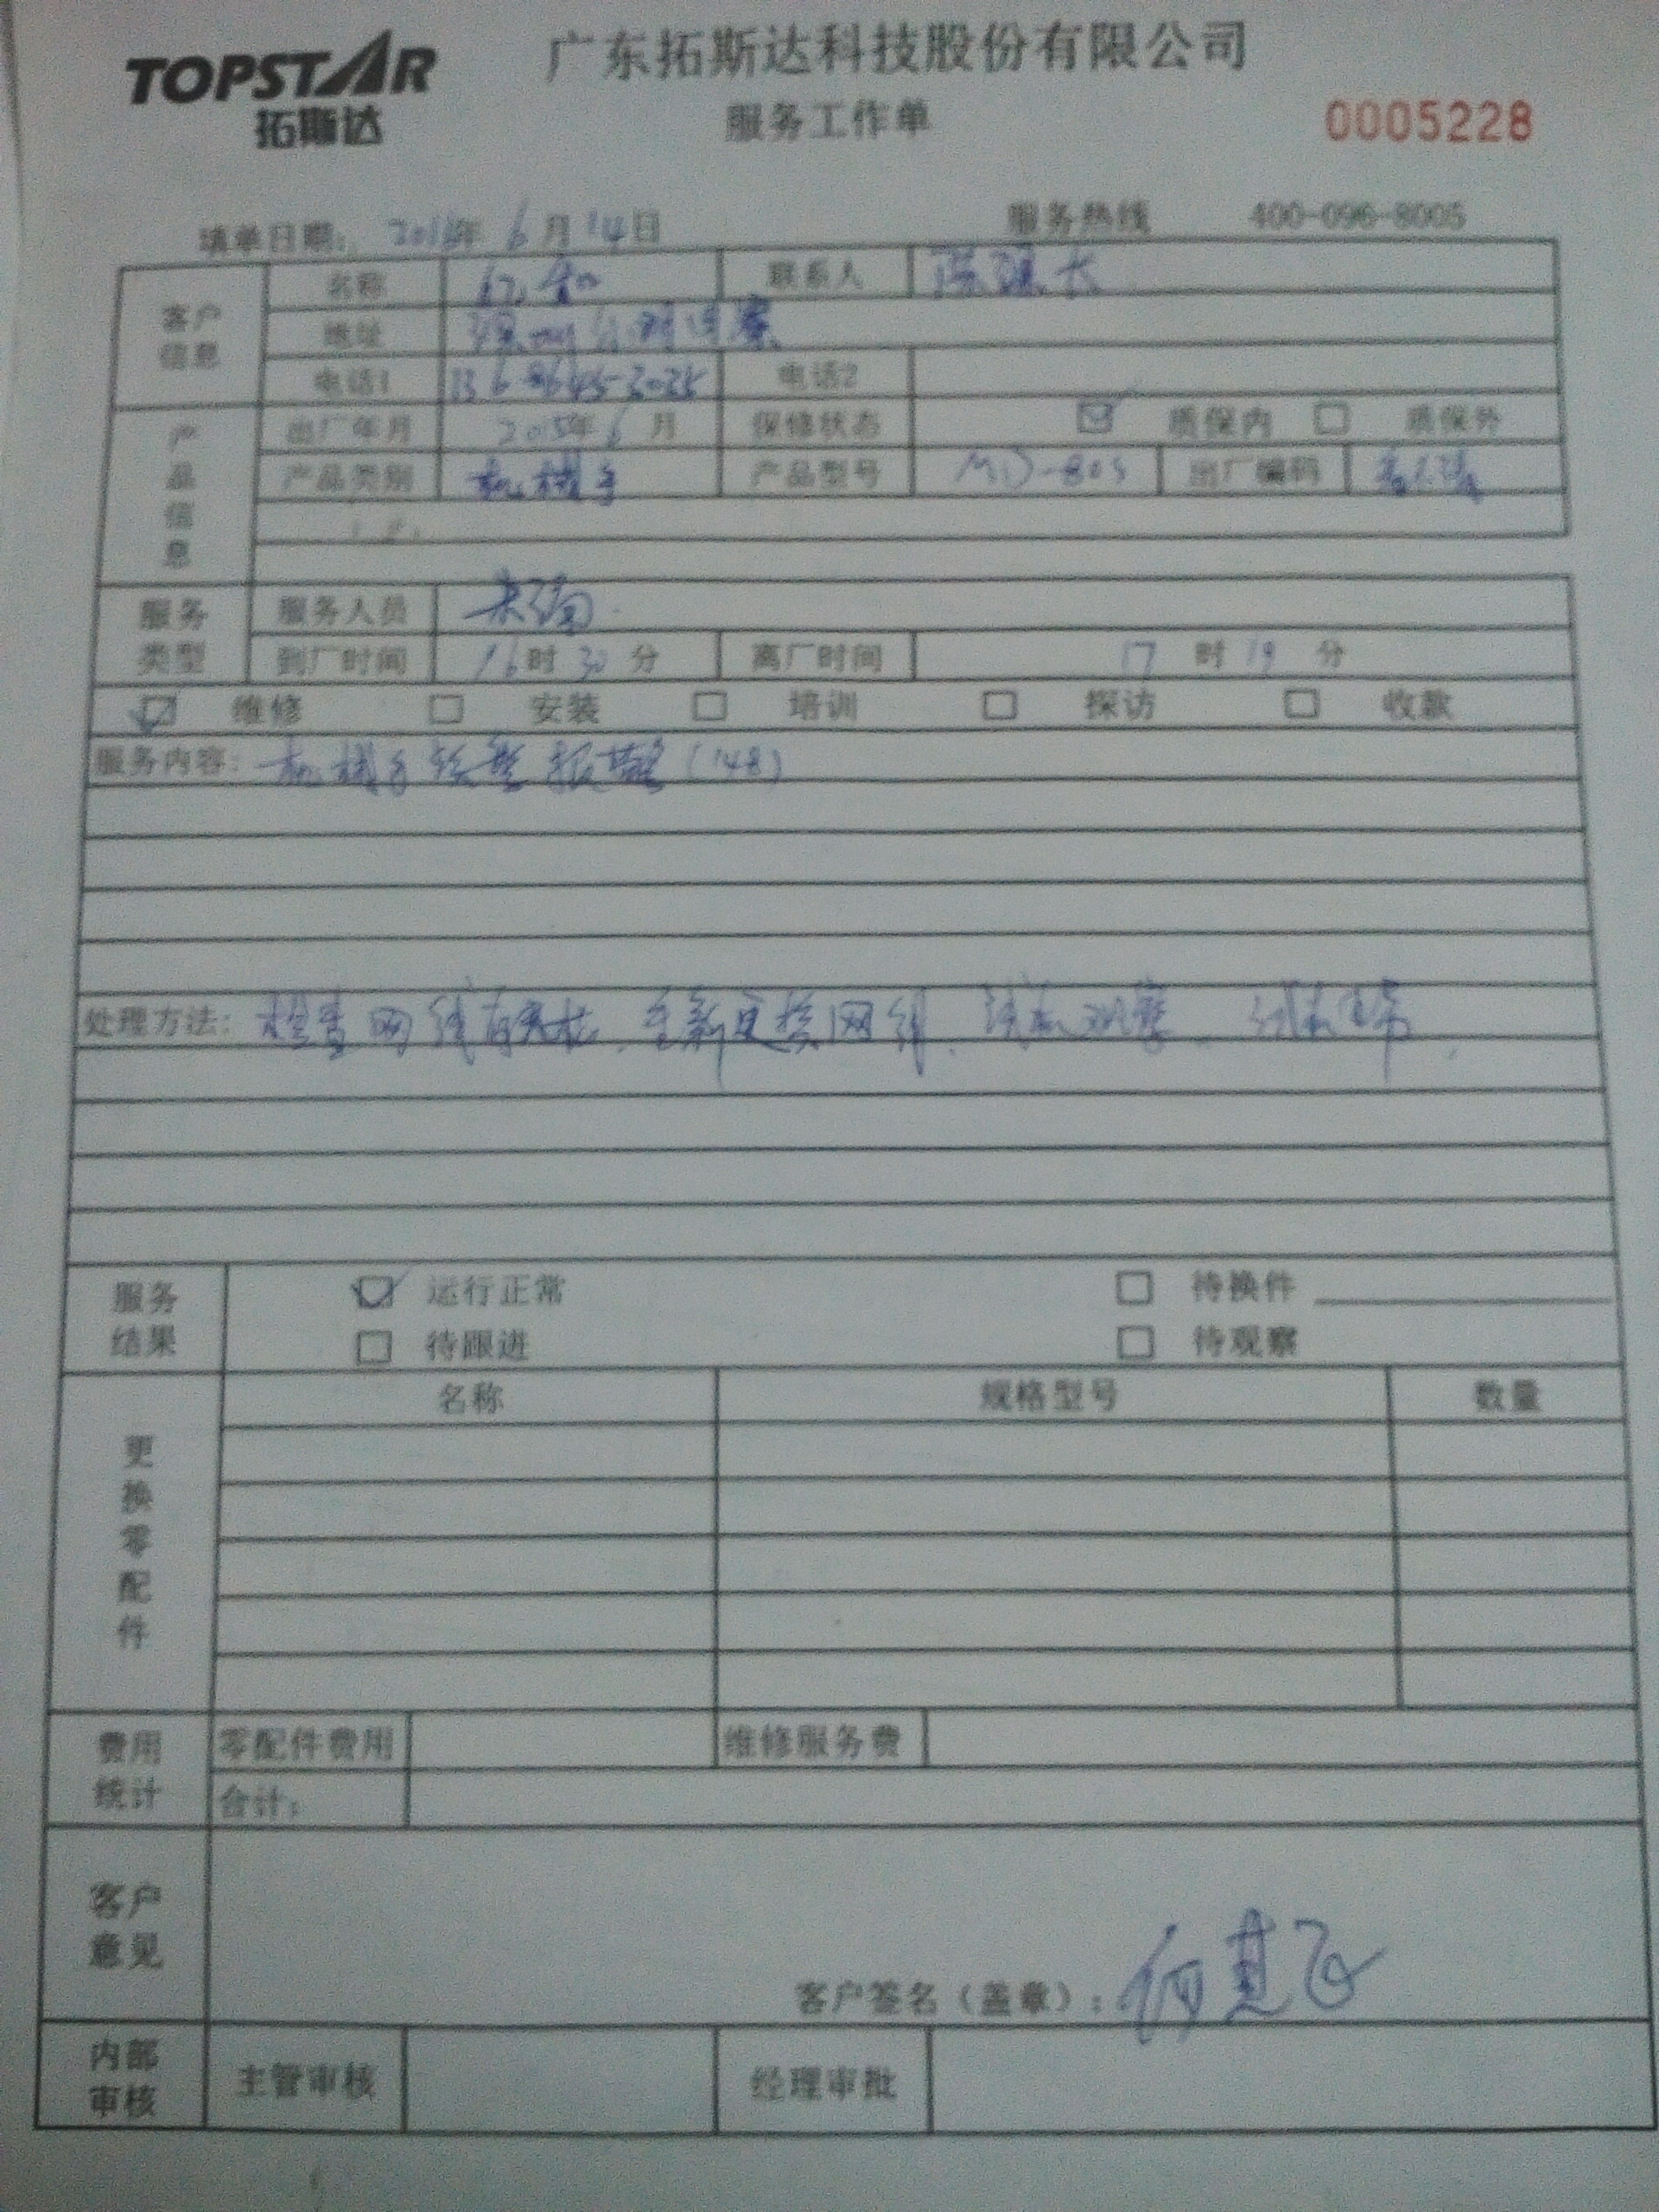 TOPSTAR
拓斯达
广东拓斯达科技股份有限公司
服务工作单
0005228
填单日期: 2016年 6月14日 服务热线 400-096-8005
客户信息
名称 联系人 课长
地址
电话1 电话2
产品信息
出厂年月 2015年6月 保修状态 ☑ 质保内 ☐ 质保外
产品类别 机械手 产品型号 MD-80S 出厂编码
服务类型
服务人员
到厂时间 16时30分 离厂时间 17时19分
☑ 维修 ☐ 安装 ☐ 培训 ☐ 探访 ☐ 收款
服务内容: 机械手 报警(148)
处理方法: 检查网线 全新更换网线 试机观察
服务结果
☑ 运行正常 ☐ 待换件
☐ 待跟进 ☐ 待观察
更换零配件
名称 规格型号 数量
费用统计
零配件费用 维修服务费
合计:
客户意见
客户签名(盖章):
内部审核
主管审核 经理审批